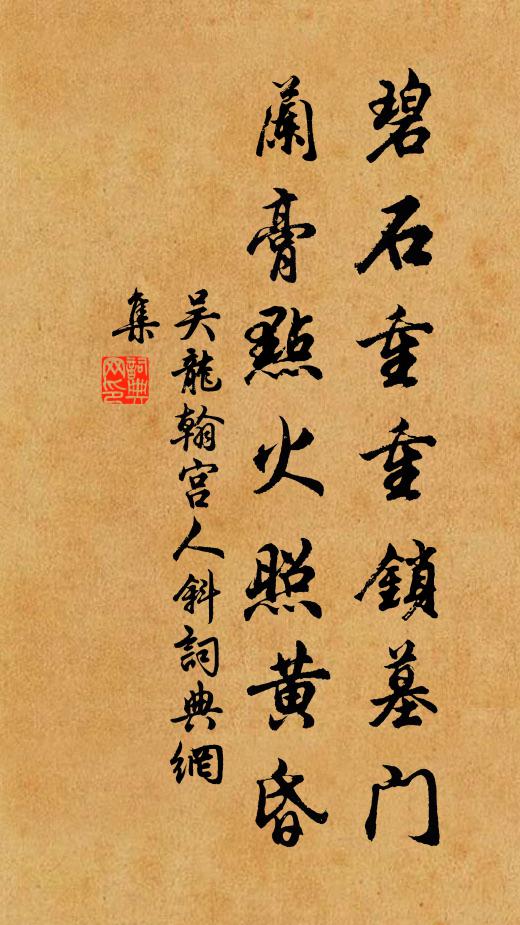 碧石重重鎖墓門
蘭膏點火照黃昏
吴龍翰宫人斜詞典網
集
詞典網印